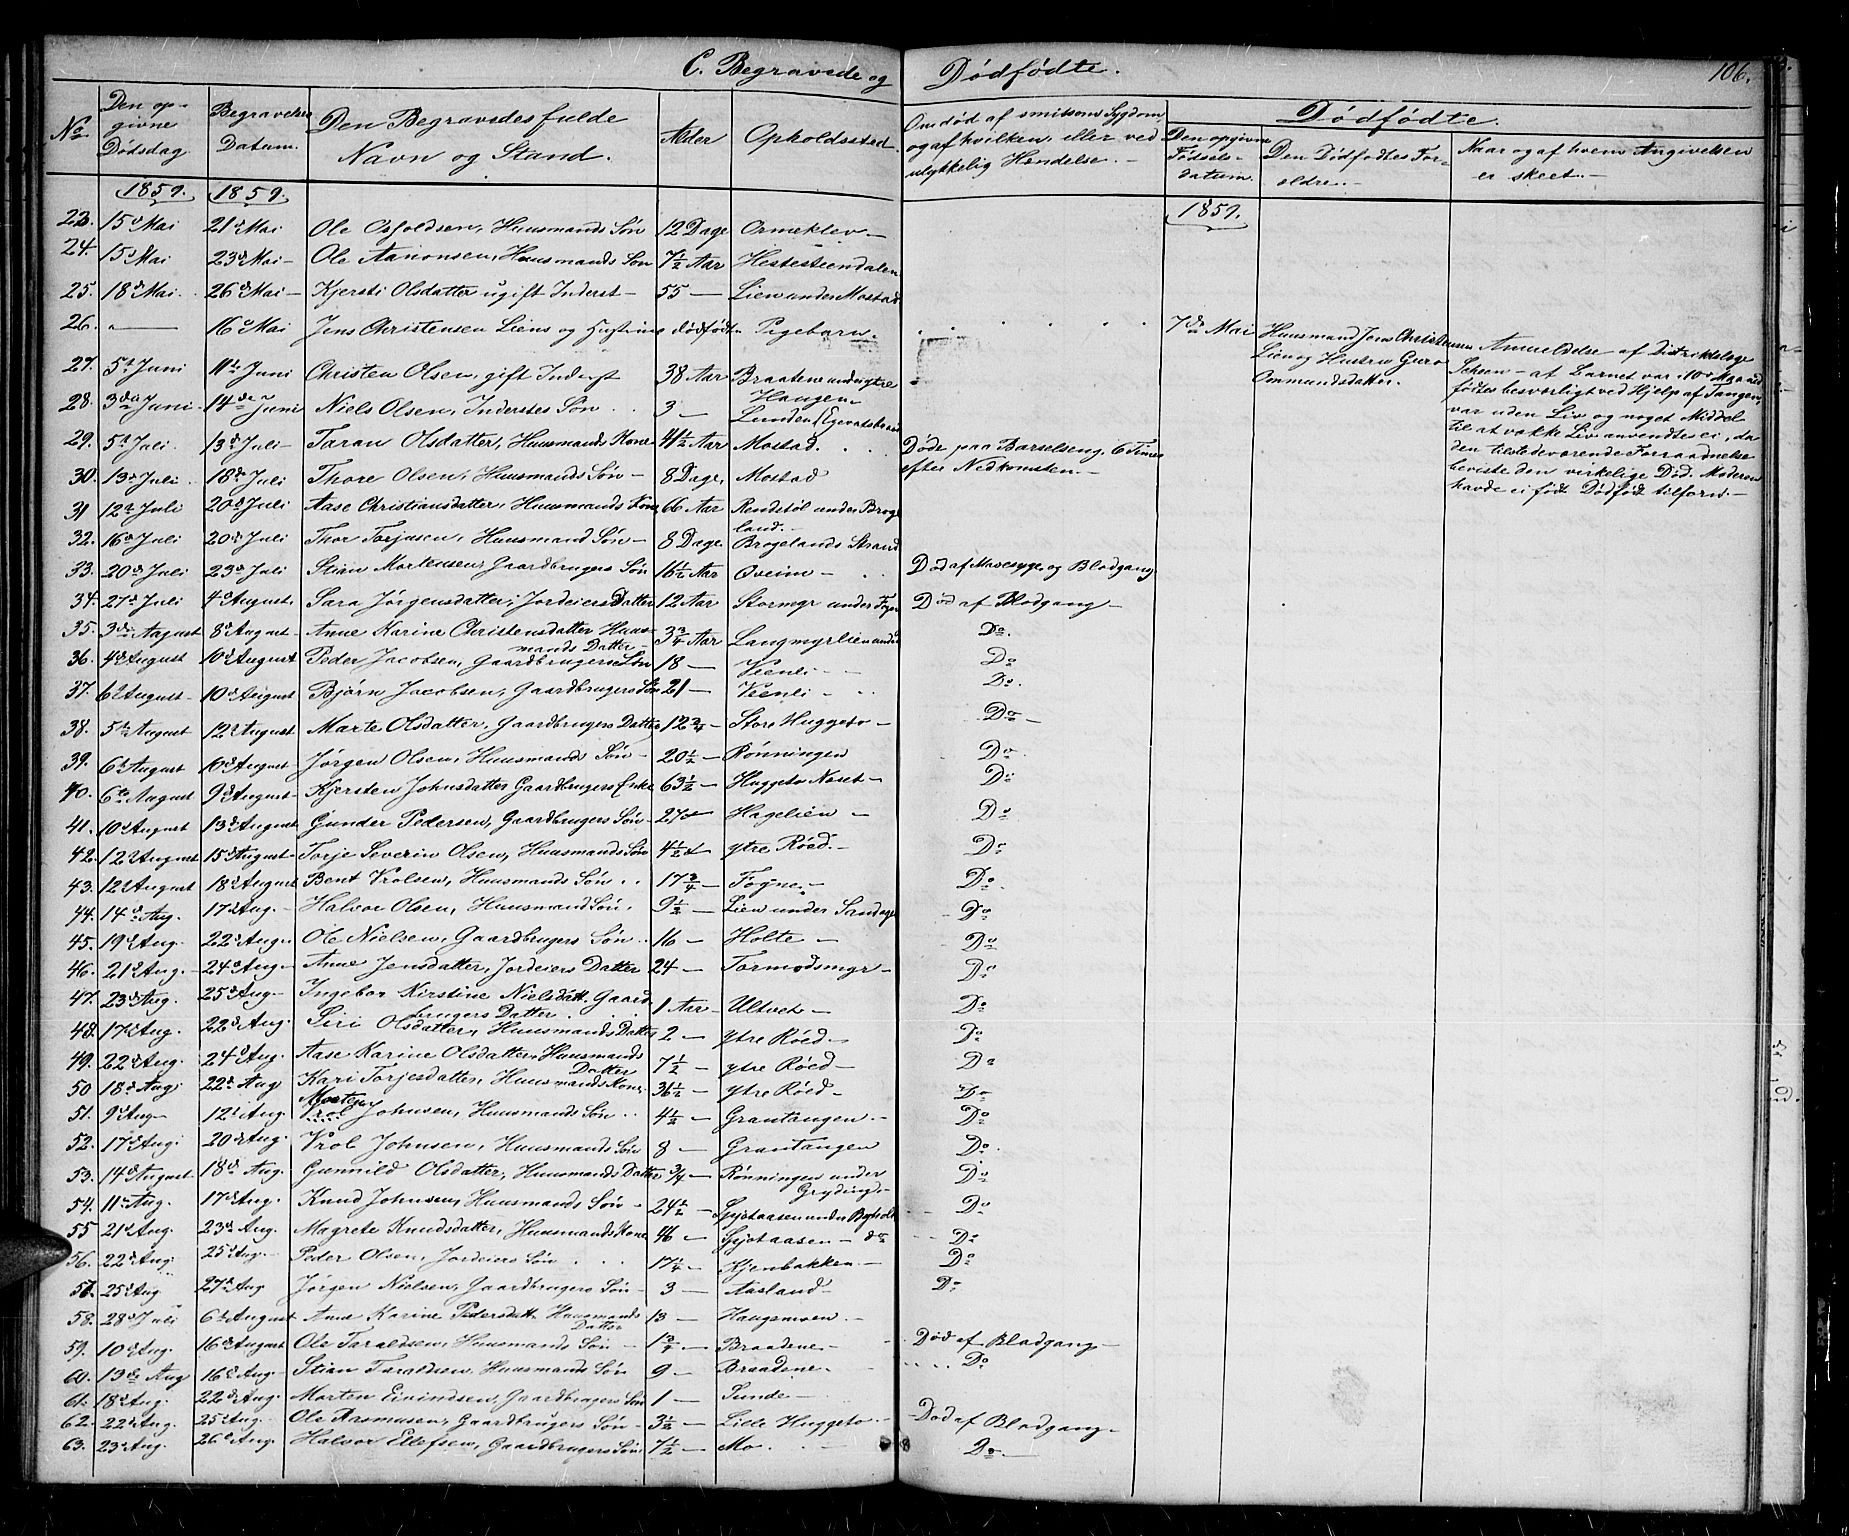 C. Begravede og Dødfødte. 106.
No. Den opgivne Dødsdag. Begravelses Datum. Den Begravedes fulde Navn og Stand. Alder Opholdssted. Om død af smitsom Sygdom, og af hvilken, eller ved ulykkelig Hendelse. Dødfødte. Den opgivne Fødselsdatum. Den Dødfødtes Forældre. Naar og af hvem Angivelsen er skeet.
1859. 1859. 1859.
23. 15d Mai 21d Mai Ole Osfoldsen, Huusmands Søn 12 Dage Ormeklev
24. 15d Mai 23d Mai Ole Aanonsen, Huusmands Søn 7½ Aar Hestesteendalen
25. 18d Mai 26d Mai Kjersti Olsdatter ugift Inderst 55 Lien under Mostad
26. 16d Mai Jens Christensen Liens og Hustrues dødfødt Pigebarn. 7de Mai Huusmand Jens Christensen Lien og Hustru Guro Ommundsdatter. Anmeldelse af Distriktslæge Scheen – at Barnet var i 10d Maaned fødtes besværligt ved Hjelp af Tangen, var uden Liv og noget Middel til at vække Liv anvendtes ei, da den tilstedeværende Forraadnelse beviste den virkelige Død. Moderen havde ei født Dødfødt tilforn.
27. 5te Juni 11te Juni Christen Olsen, gift Inderst 38 Aar Braatene under ytre Haugen
28. 3die Juni 14de Juni Niels Olsen, Inderstes Søn 3 Lunden
29. 5te Juli 13d Juli Taran Olsdatter, Huusmands Kone 41½ Aar Mostad. Døde paa Barselseng, 6 Timer efter Nedkomsten.
30. 13d Juli 18de Juli Thore Olsen, Huusmands Søn 8 Dage, Mostad
31 12te Juli 20d Juli Aase Christiansdatter, Huusmands Kone 66 Aar Rendstøl under Brogeland.
32. 16d Juli 20d Juli Thor Torjusen, Huusmand Søn 8 Dage Brogelands Strand
33. 20d Juli 23d Juli Stian Mortensen, Gaardbrugers Søn 16½ Aar Oveim Død af Mavesyge og Blodgang
34. 27d Juli 4d August. Sara Jørgensdatter, Jordeiers Datter 12 Aar Stormyr under Død af Blodgang
35. 3die August 8d August Anne Karine Christensdatter Huusmands Datter 3¾ Aar Langmyrlien under Do.
36. 4d August 10d August Peder Jacobsen, Gaardbrugers Søn 18 Veenli Do
37. 6d August 10d August Bjørn Jacobsen, Gaardbrugers Søn 21 Veenli Do.
38. 5te August 12d August Marte Olsdatter, Gaardbrugers Datter 12¾ Store Huggeto Do
39. 6d August 10d August Jørgen Olsen, Huusmands Søn 20½ Rønningen Do
40. 6te August 9d August Kjersten Johnsdatter Gaardbrugers Enke 63½ Huggeto Næset Do
41. 10d August 13d August. Gunder Pedersen, Gaardbrugers Søn 27 Hagelien Do
42. 12d August 15d August Torje Severin Olsen, Huusmands Søn 4½ ytre Røed. Do
43. 12d August 18d August Bent Vrolsen, Huusmands Søn 17¾ Fogne Do
44. 14d Aug. 17d Aug. Halvor Olsen, Huusmand Søn. 9½ Lien under Do
45. 19d Aug. 22d Aug. Ole Nielsen, Gaardbrugers Søn 16 Holte Do
46. 21d Aug. 24d Aug. Anne Jensdatter, Jordeiers Datter 24 Tormodsmyr Do
47. 23d Aug. 25d Aug Ingebor Kirstine Nielsdatt. Gaardbrugers Datter 1 Aar Ulvet Do
48. 17d Aug. 22d Aug Siri Olsdatter, Huusmands Datter 2 ytre Røed Do
49. 22d Aug. 24d Aug. Aase Karine Olsdatter, Huusmands Datter 7½ ytre Røed Do
50 18d Aug 22d Aug Kari Torjesdatter, Huusmands Kone 36½ ytre Røed Do
51. 9d Aug 12d Aug. Morten Vrol Johnsen, Huusmands Søn 4½ Grantangen. Do
52. 17d Aug. 20d Aug. Vrol Johnsen, Huusmands Søn 8 Grantangen Do.
53. 14d August 18d Aug. Gunnild Olsdatter, Huusmands Datter ¾ Rønningen under Gryding Do
54. 11te Aug. 17d Aug. Knud Johnsen, Huusmands Søn 24½ Do
55 21d Aug. 23d Aug. Magrete Knudsdatter, Huusmands Kone 46 do Do
56. 22d Aug 25d Aug. Peder Olsen, Jordeiers Søn 17¼ Kjenbakken Do
57. 25d Aug 27d Aug Jørgen Nielsen, Gaardbrugers Søn 3 Aasland Do
58. 28d Juli 6te August Anne Karine Pedersdatt. Huusmands Datter 13 Haugemoen
59. 10d Aug. 16d August Ole Taraldsen, Huusmands Søn Braadene Død af Blodgang
60. 13de Aug 16d Aug. Stian Taraldsen, Huusmands Søn 9 Braadene Do
61. 18d Aug. 22d Aug. Morten Eivindsen, Gaardbrugers Søn 1 Sunde
62. 22d Aug. 25d Aug. Ole Rasmusen, Gaardbrugers Søn 3½ Lille Huggeto Død af Blodgang
63. 23d Aug. 26d Aug. Halvor Ellefsen, Gaardbrugers Søn 7½ Mo. Do